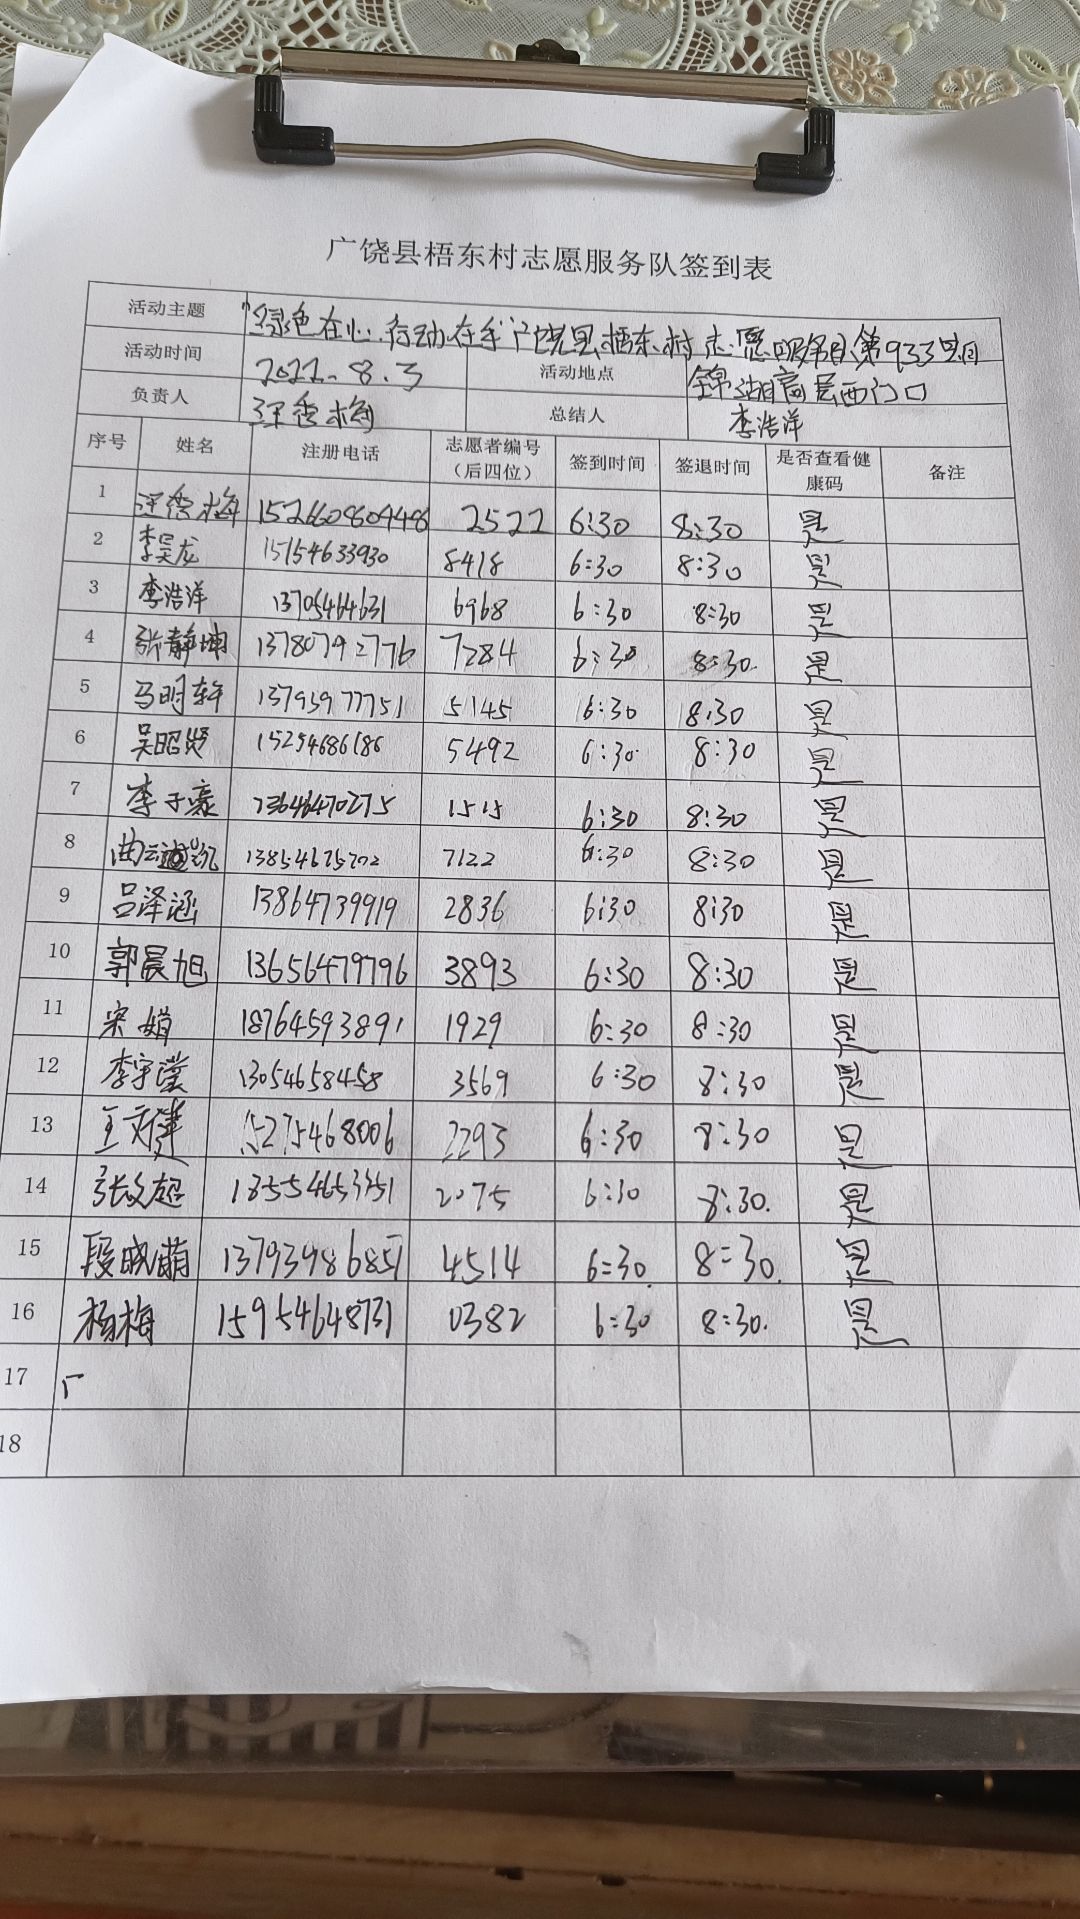 广饶县梧东村志愿服务队签到表
活动主题 "绿色在心.行动在手"广饶县梧东村志愿服务队第933期
活动时间 2022.8.3 活动地点 锦湖高层西门口
负责人 香梅 总结人 李浩洋
序号 姓名 注册电话 志愿者编号（后四位） 签到时间 签退时间 是否查看健康码 备注
1 香梅 2522 6:30 8:30 是
2 李昊龙 15154633930 8418 6:30 8:30 是
3 李浩洋 13705464631 6968 6:30 8:30 是
4 张静坤 13780792776 7284 6:30 8:30. 是
5 马明轩 13793977751 5145 6:30 8:30 是
6 吴昭贤 15254686186 5492 6:30. 8:30 是
7 李子豪 13646470275 1515 6:30 8:30 是
8 曲云 7122 6:30 8:30 是
9 吕泽涵 13864739919 2836 6:30 8:30 是
10 郭晨旭 13656479796 3893 6:30 8:30 是
11 宋娟 18764593891 1929 6:30 8:30 是
12 李宇莹 13054658458 3569 6:30 8:30 是
13 王 15275468006 2293 6:30 8:30 是
14 张文超 18554653351 2075 6:30 8:30. 是
15 段晓萌 13793986857 4514 6:30. 8:30. 是
16 杨梅 15954648731 0382 6:30 8:30. 是
17
18